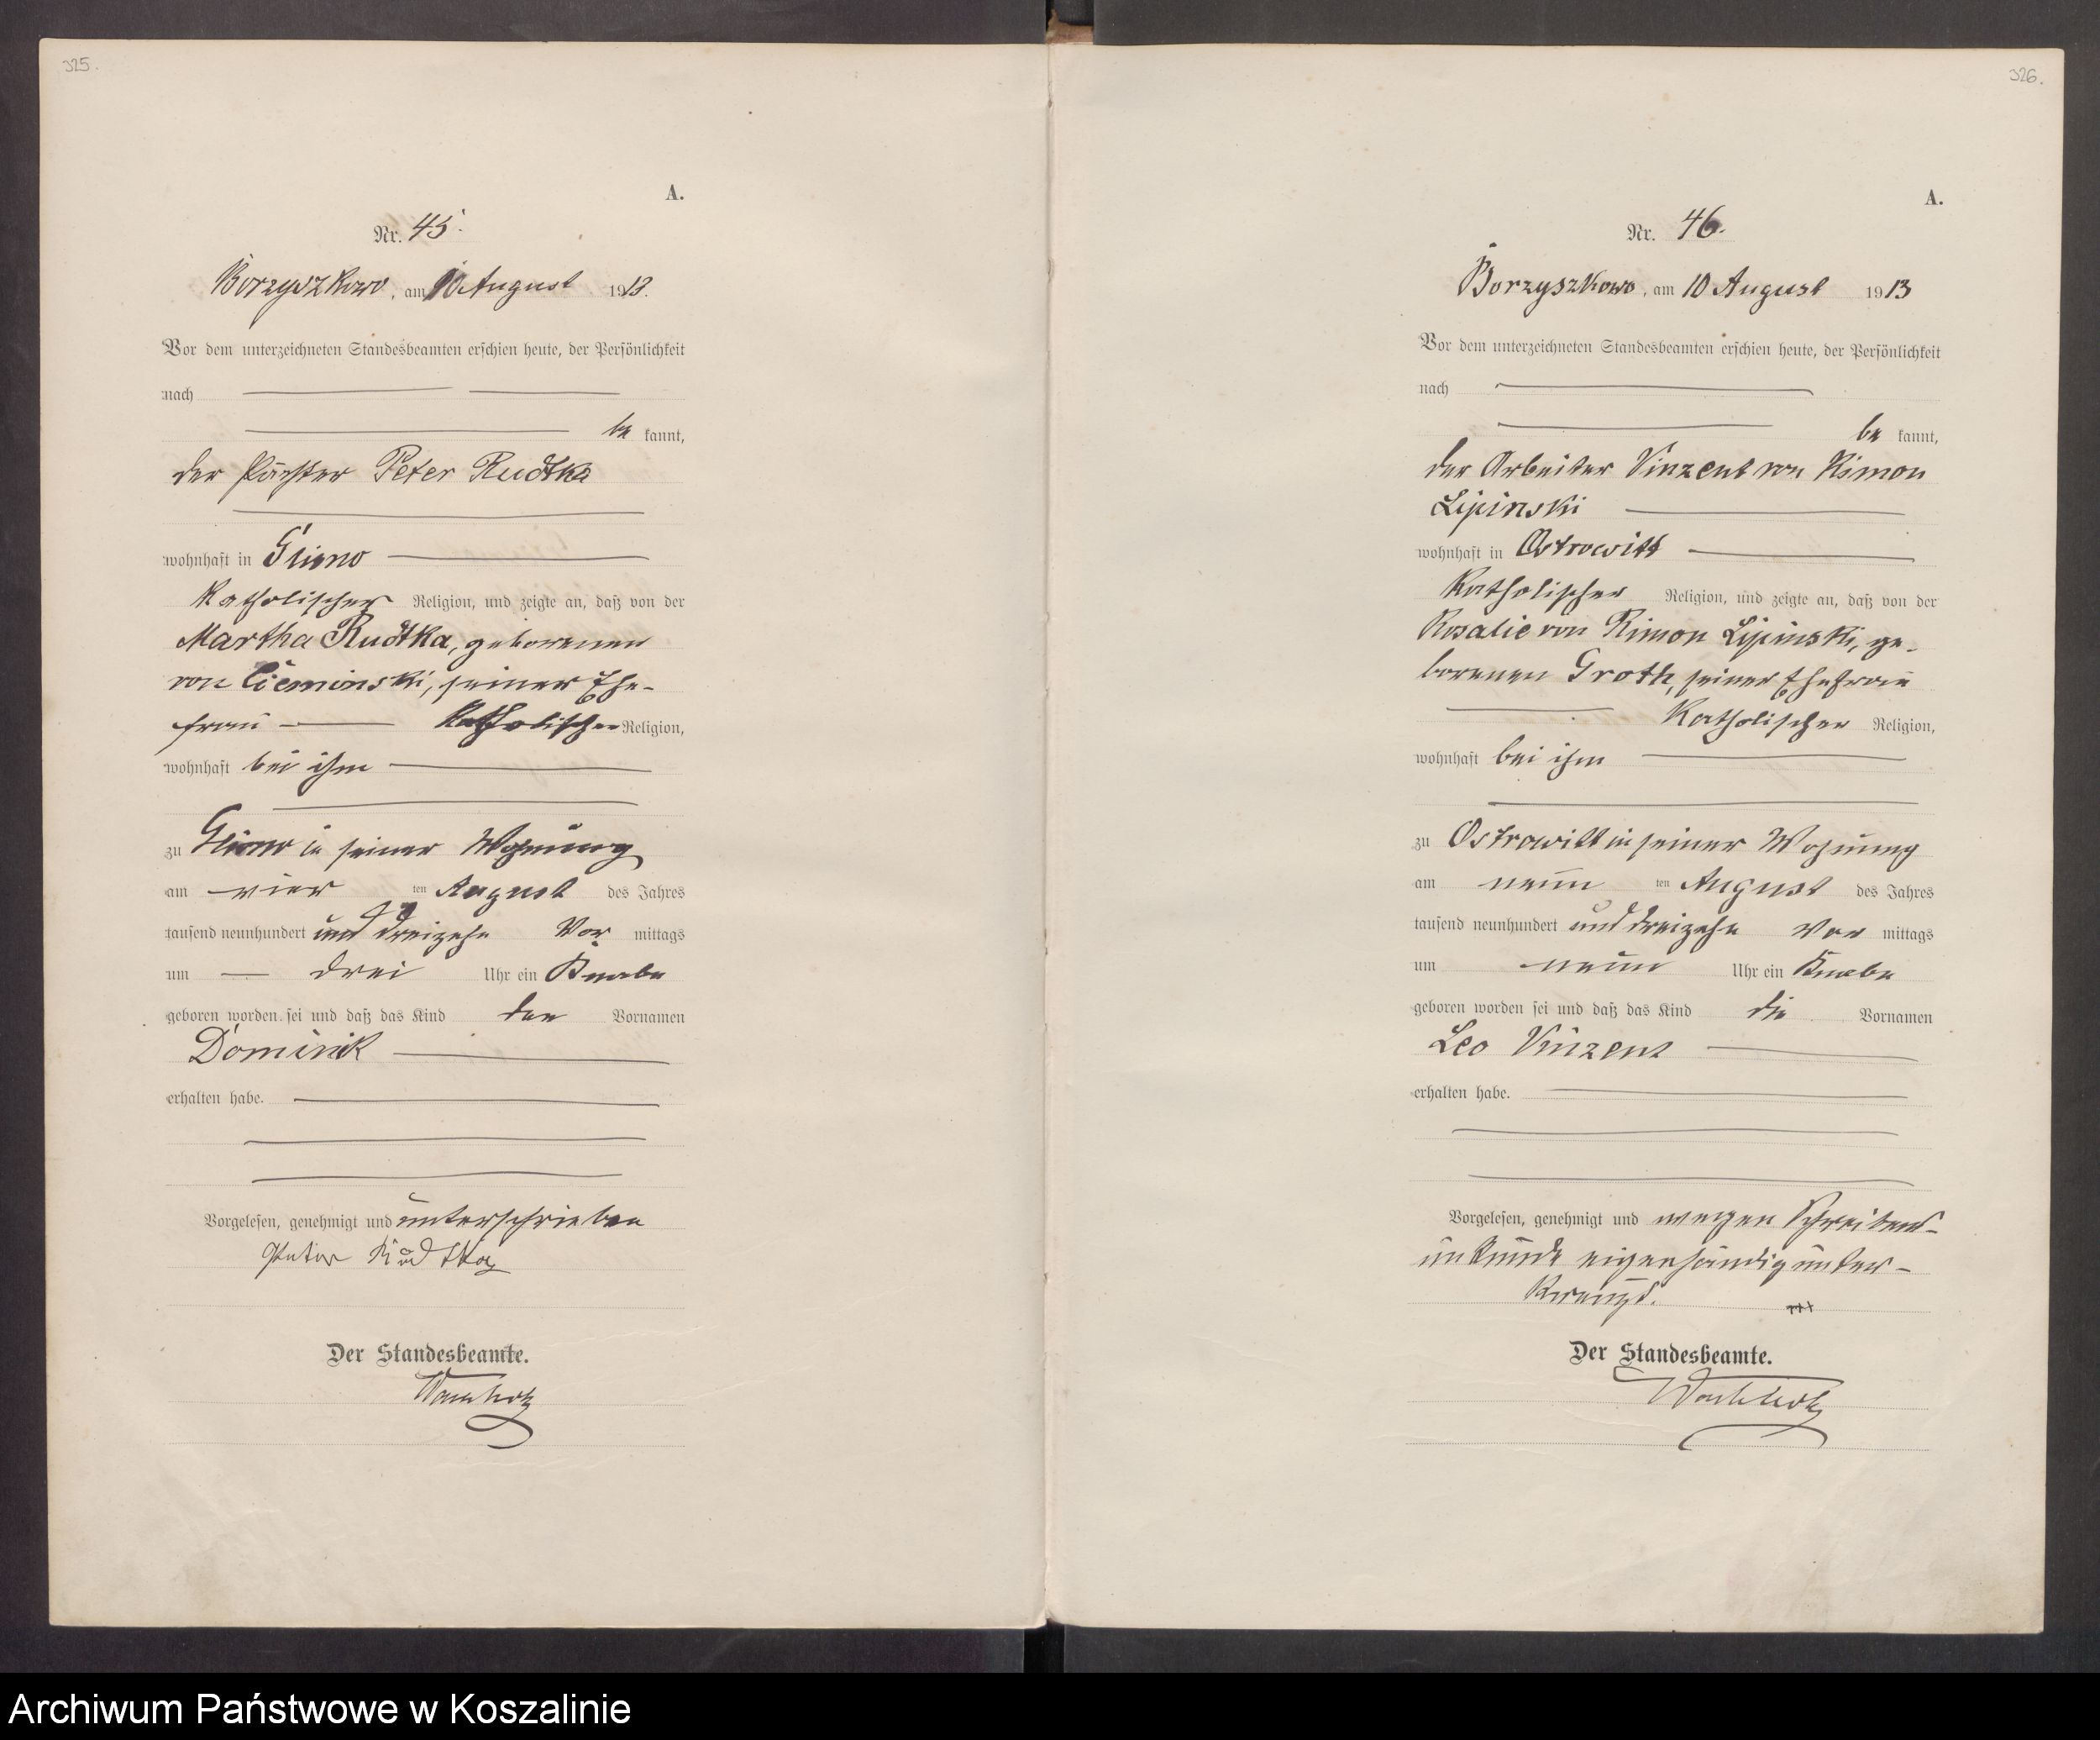 325.
A.
Nr. 45.
Borzyszkowo, am 10 August 1913.
Vor dem unterzeichneten Standesbeamten erschien heute, der Persönlichkeit
nach
be kannt,
der Pächter Peter Rudtka
wohnhaft in Glisno
katholischer Religion, und zeigte an, daß von der
Martha Rudtka, geborenen
von Cieminski, seiner Ehe-
frau katholischer Religion,
wohnhaft bei ihm
zu Glisno in seiner Wohnung
am vier ten August des Jahres
tausend neunhundert und dreizehn Vor mittags
um drei Uhr ein Knabe
geboren worden sei und daß das Kind den Vornamen
Dominik
erhalten habe.
Vorgelesen, genehmigt und unterschrieben
Peter Rudtka
Der Standesbeamte.
326.
A.
Nr. 46.
Borzyszkowo, am 10 August 1913
Vor dem unterzeichneten Standesbeamten erschien heute, der Persönlichkeit
nach
be kannt,
der Arbeiter Vinzent von Kimon
Lipinski
wohnhaft in Ostrowitt
katholischer Religion, und zeigte an, daß von der
Rosalie von Kimon Lipinski, ge-
borenen Groth, seiner Ehefrau
katholischer Religion,
wohnhaft bei ihm
zu Ostrowitt in seiner Wohnung
am neun ten August des Jahres
tausend neunhundert und dreizehn Vor mittags
um neun Uhr ein Knabe
geboren worden sei und daß das Kind die Vornamen
Leo Vinzent
erhalten habe.
Vorgelesen, genehmigt und wegen Schreibens-
unkunde eigenhändig unter-
kreuzt. +++
Der Standesbeamte.
Archiwum Państwowe w Koszalinie